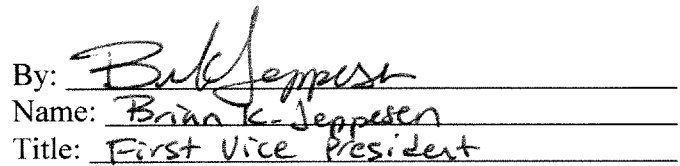 By: Brian K Jeppesen
Name: Brian K. Jeppesen
Title: First Vice President